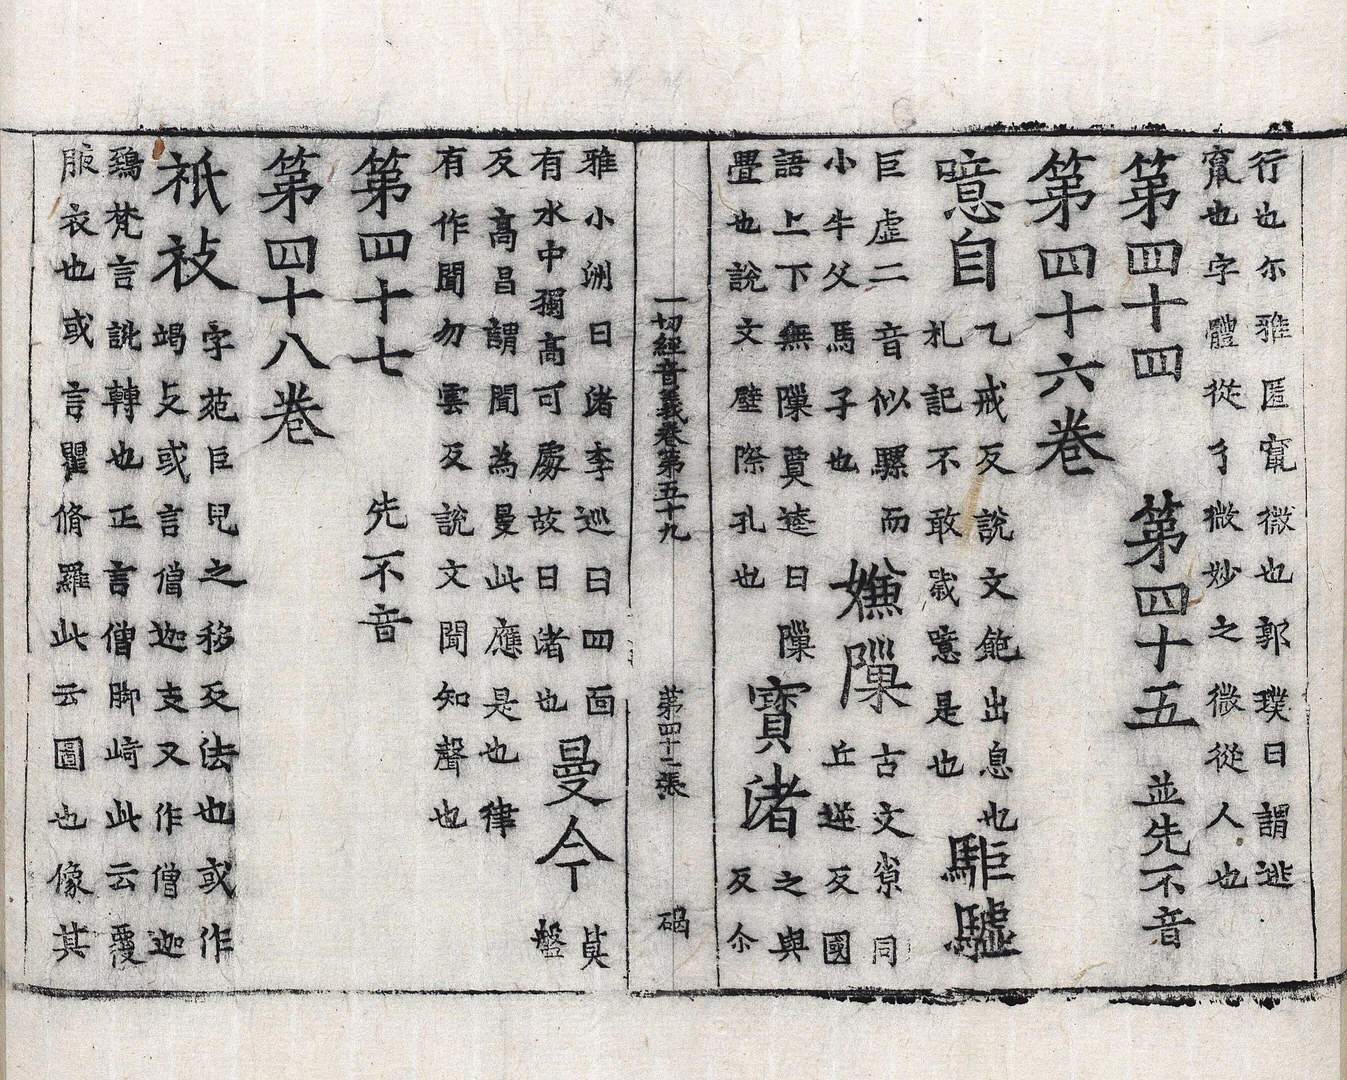 行也尓雅匿竄微也郭璞曰謂逃
竄也字體從彳微妙之微從人也
第四十四 第四十五 並先不音
第四十六卷
噫自
乙戒反説文飽出息也
札記不敢噦噫是也
駏驉
巨虛二音似騾而
小牛父馬子也
嫌隟
古文𡭴同
丘逆反國
語上下無隟賈逵曰隟
疊也說文壁際孔也
寳渚
之與
反尒
一切經音義卷第五十九 第四十二張 碣
雅小洲曰渚李巡曰四面
有水中獨高可處故曰渚也
曼今
莫
盤
反高昌謂聞為曼此應是也律
有作聞勿雲反說文聞知聲也
第四十七 先不音
第四十八卷
祇衼
字苑巨兒之移反法也或作
竭支或言僧迦支又作僧迦
鵄梵言訛轉也正言僧脚崎此云覆
腋衣也或言瞿脩羅此云圖也像其